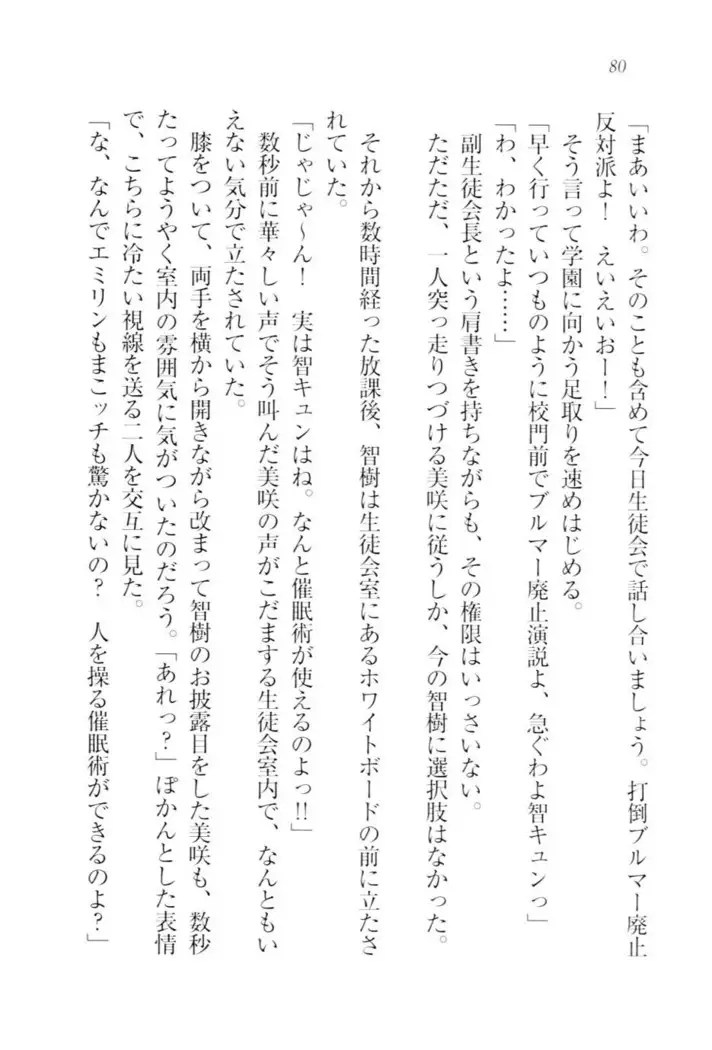 80
「まあいいわ。そのことも含めて今日生徒会で話し合いましょう。打倒ブルマー廃止
反対派よ！　えいえいおー！」
　そう言って学園に向かう足取りを速めはじめる。
「早く行っていつものように校門前でブルマー廃止演説よ、急ぐわよ智キュンっ」
「わ、わかったよ……」
　副生徒会長という肩書きを持ちながらも、その権限はいっさいない。
　ただただ、一人突っ走りつづける美咲に従うしか、今の智樹に選択肢はなかった。
　それから数時間経った放課後、智樹は生徒会室にあるホワイトボードの前に立たさ
れていた。
「じゃじゃ～ん！　実は智キュンはね。なんと催眠術が使えるのよっ!!」
　数秒前に華々しい声でそう叫んだ美咲の声がこだまする生徒会室内で、なんともい
えない気分で立たされていた。
　膝をついて、両手を横から開きながら改まって智樹のお披露目をした美咲も、数秒
たってようやく室内の雰囲気に気がついたのだろう。「あれっ？」ぽかんとした表情
で、こちらに冷たい視線を送る二人を交互に見た。
「な、なんでエミリンもまこッチも驚かないの？　人を操る催眠術ができるのよ？」